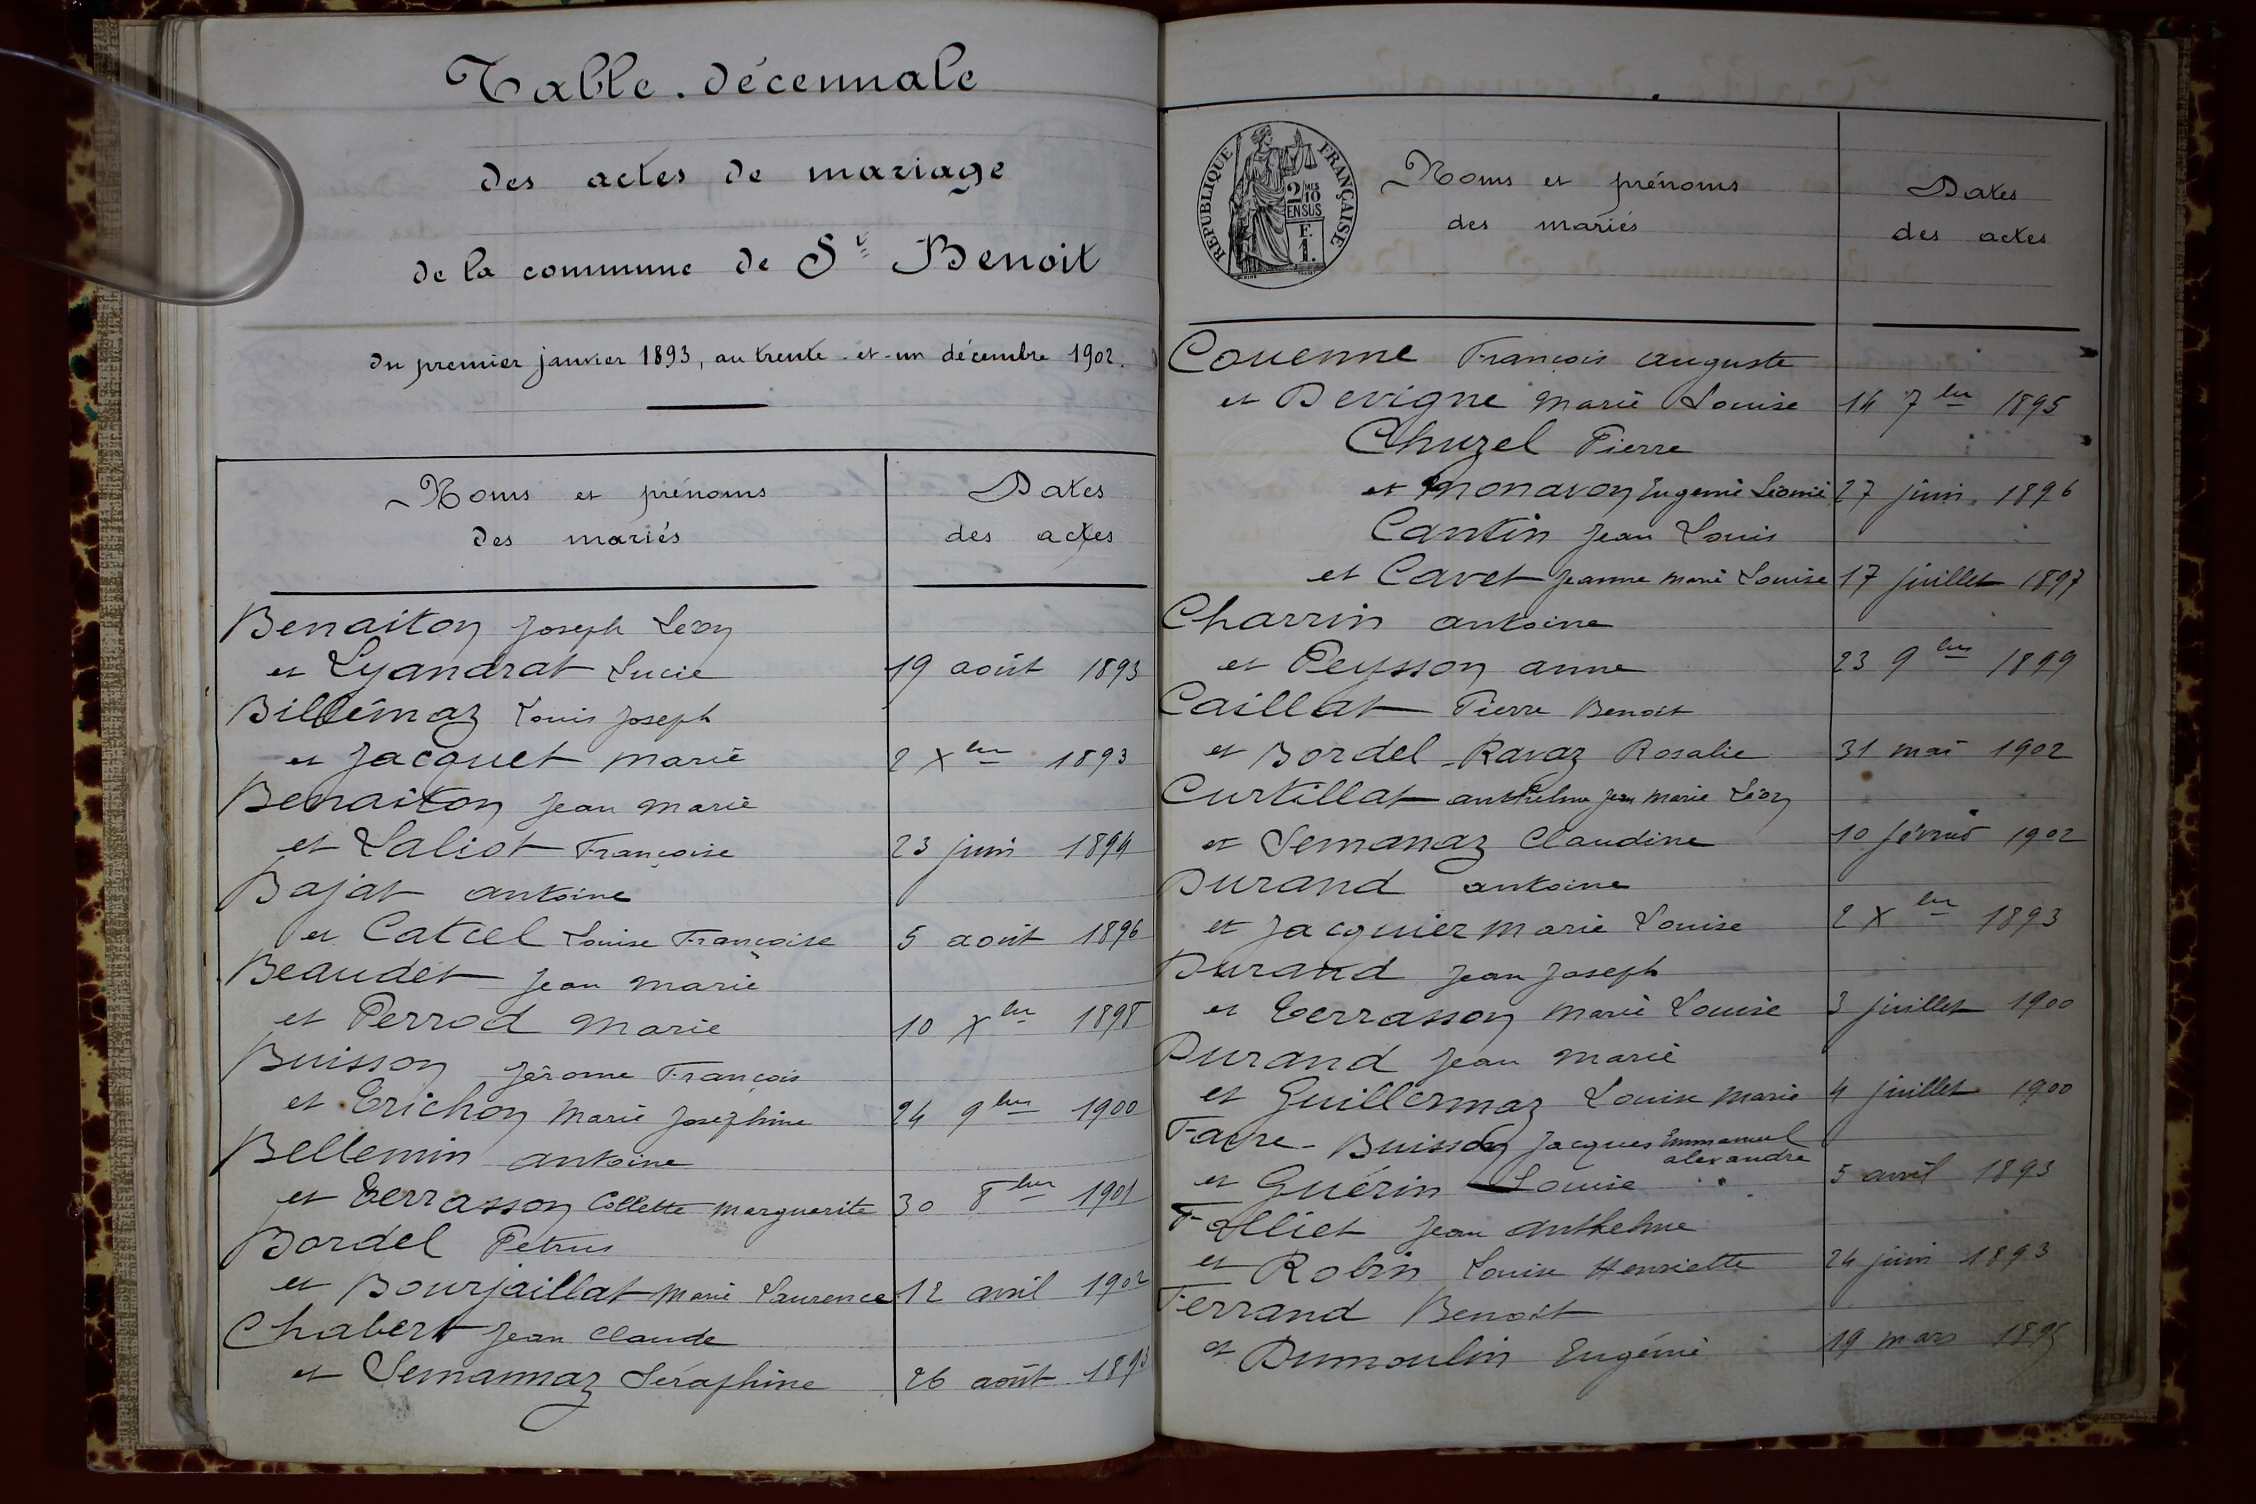 Table décennale
des actes de mariage
de la commune de St Benoit
du premier janvier 1893, au trente-et-un décembre 1902.
Noms et prénoms
des mariés
Dates
des actes
Benaiton Joseph Léon
et Lyandrat Lucie 19 août 1893
Billémaz Louis Joseph
et Jacquet Marie 2 Xbre 1893
Benaiton Jean Marie
et Laliot Françoise 23 juin 1894
Bajat antoine
et Catcel Louise Françoise 5 août 1896
Beaudet Jean Marie
et Perrod Marie 10 Xbre 1898
Buisson Jérome François
et Erichon Marie Josephine 24 9bre 1900
Bellemin antoine
et Terrasson Collette Marguerite 30 8bre 1901
Bordel Petrus
et Bourjaillat Marie Laurence 12 avril 1902
Chabert Jean Claude
et Semannaz Séraphine 26 août 1893
REPUBLIQUE FRANÇAISE
2/10MES
EN SUS
F.
1.
Noms et prénoms
des mariés
Dates
des actes
Couenne François auguste
et Devigne Marie Louise 14 7bre 1895
Chuzel Pierre
et Monavon Eugenie Léonie 27 juin 1896
Cantin Jean Louis
et Cavet Jeanne Marie Louise 17 juillet 1897
Charrin antoine
et Peysson anne 23 9bre 1899
Caillat Pierre Benoit
et Bordel-Ravaz Rosalie 31 mai 1902
Curtillat anthelme Jean Marie Léon
et Semanaz Claudine 10 février 1902
Durand antoine
et Jacquier Marie Louise 2 Xbre 1893
Durand Jean Joseph
et Terrasson Marie Louise 3 juillet 1900
Durand Jean Marie
et Guillermaz Louise Marie 4 juillet 1900
Favre-Buisson Jacques Emmanuel
alexandre
et Guérin Louise 5 avril 1893
Folliet Jean Anthelme
et Robin Louise Henriette 24 juin 1893
Ferrand Benoît
et Dumoulin Eugénie 19 mars 1895